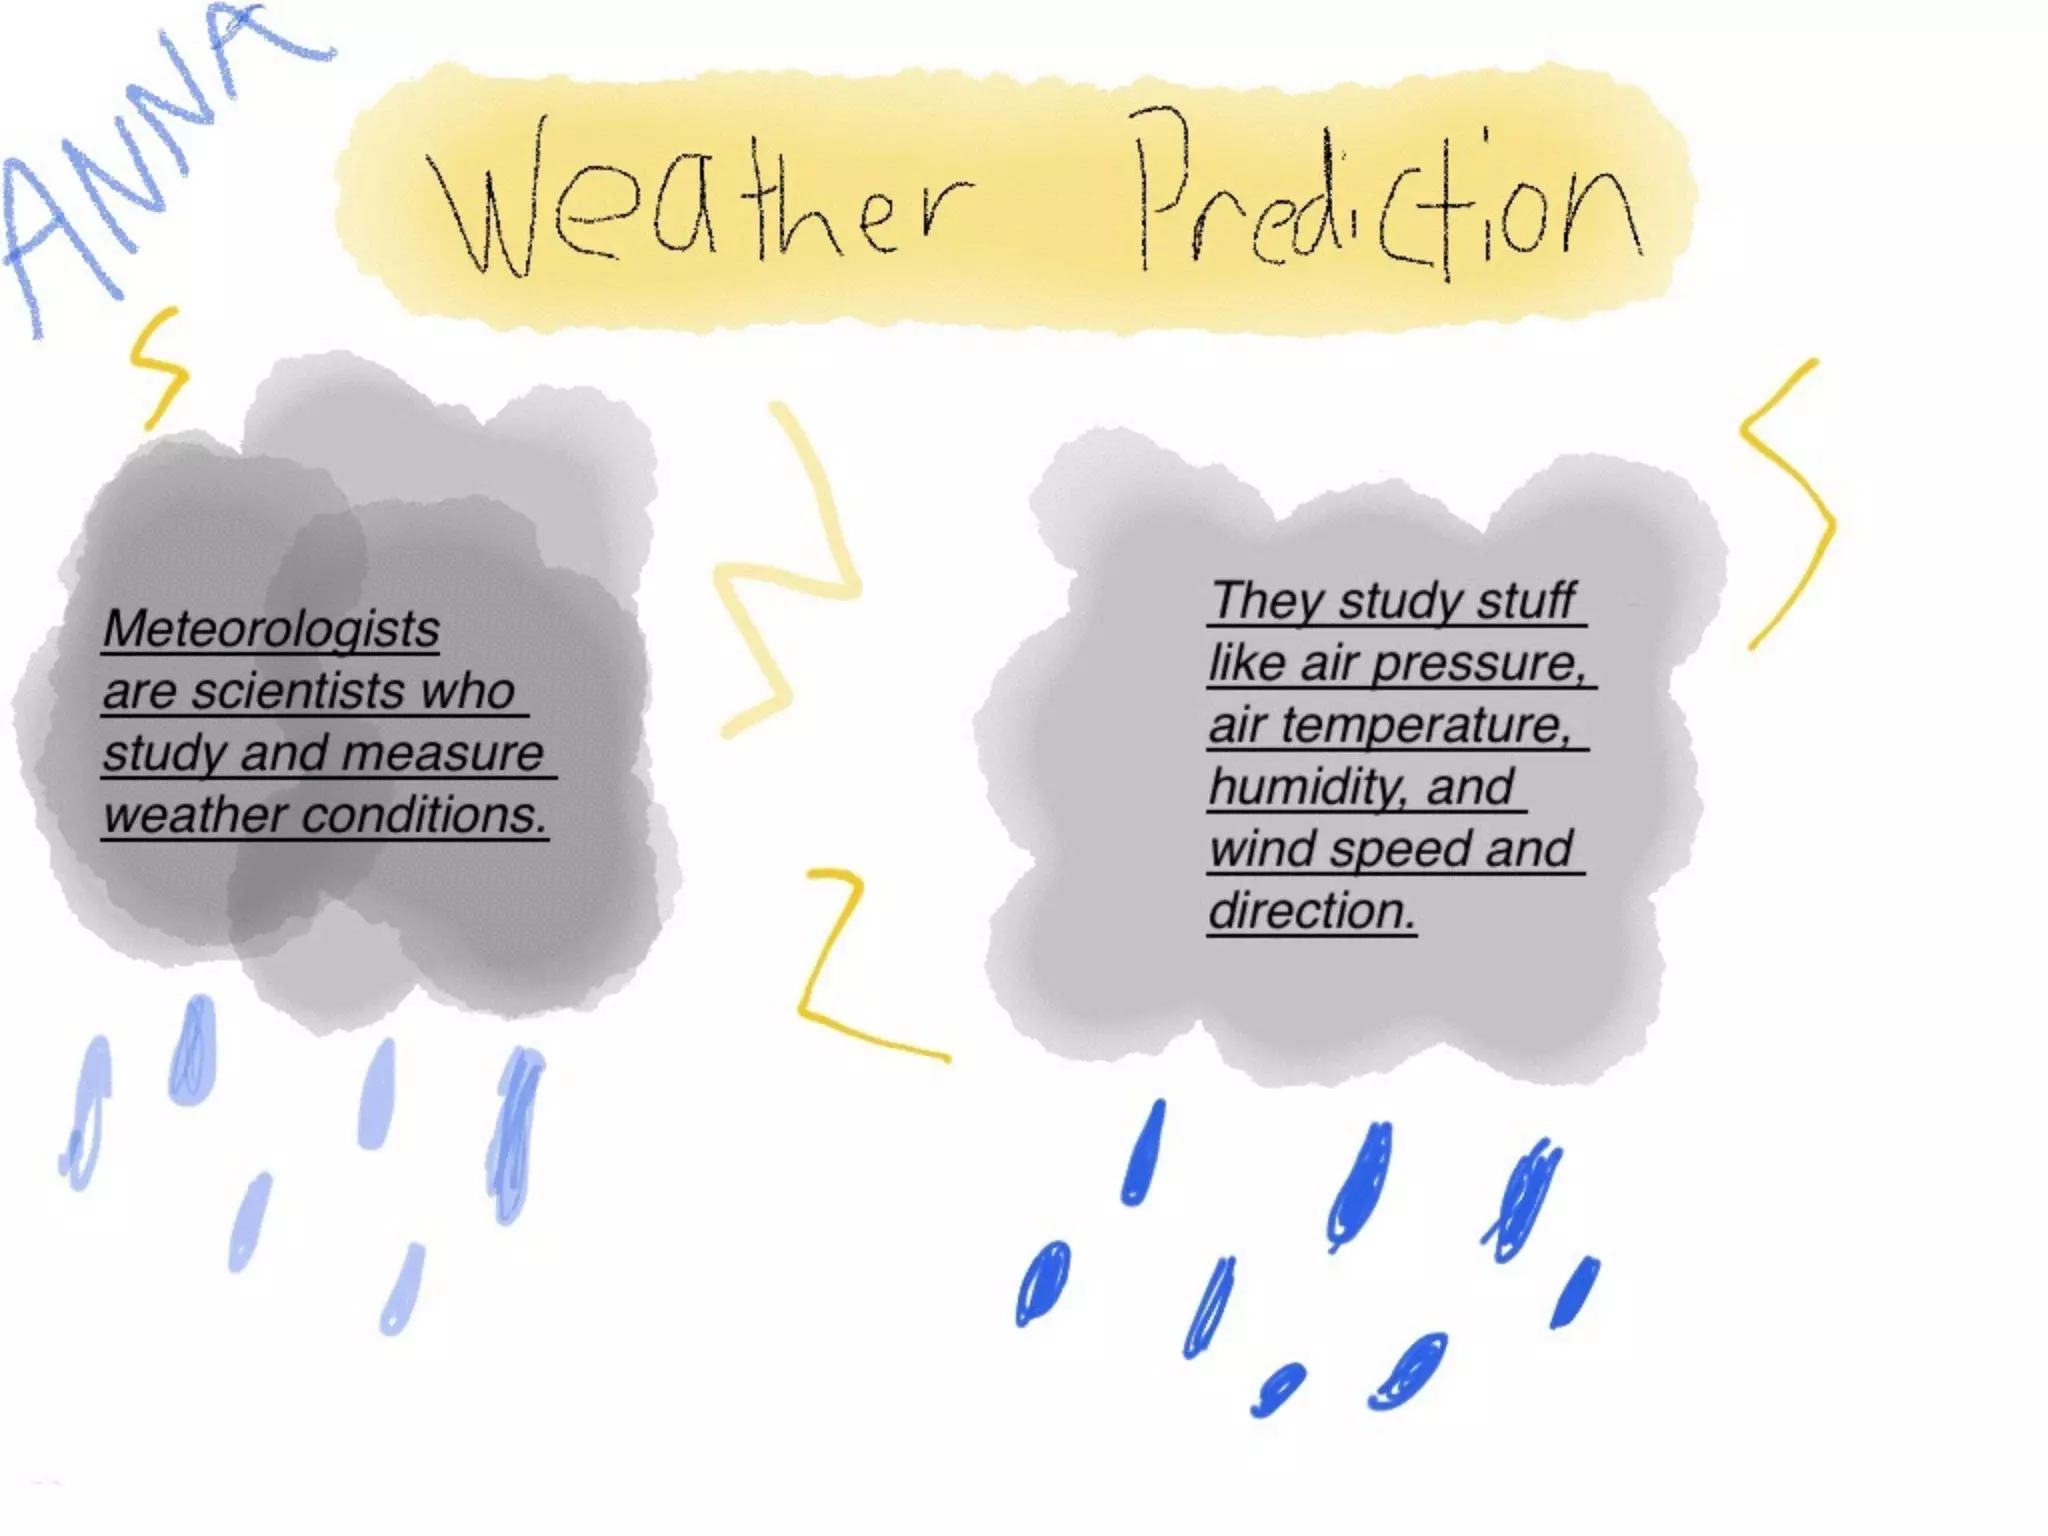 ANNA
Weather Prediction
Meteorologists
are scientists who
study and measure
weather conditions.
They study stuff
like air pressure,
air temperature,
humidity, and
wind speed and
direction.